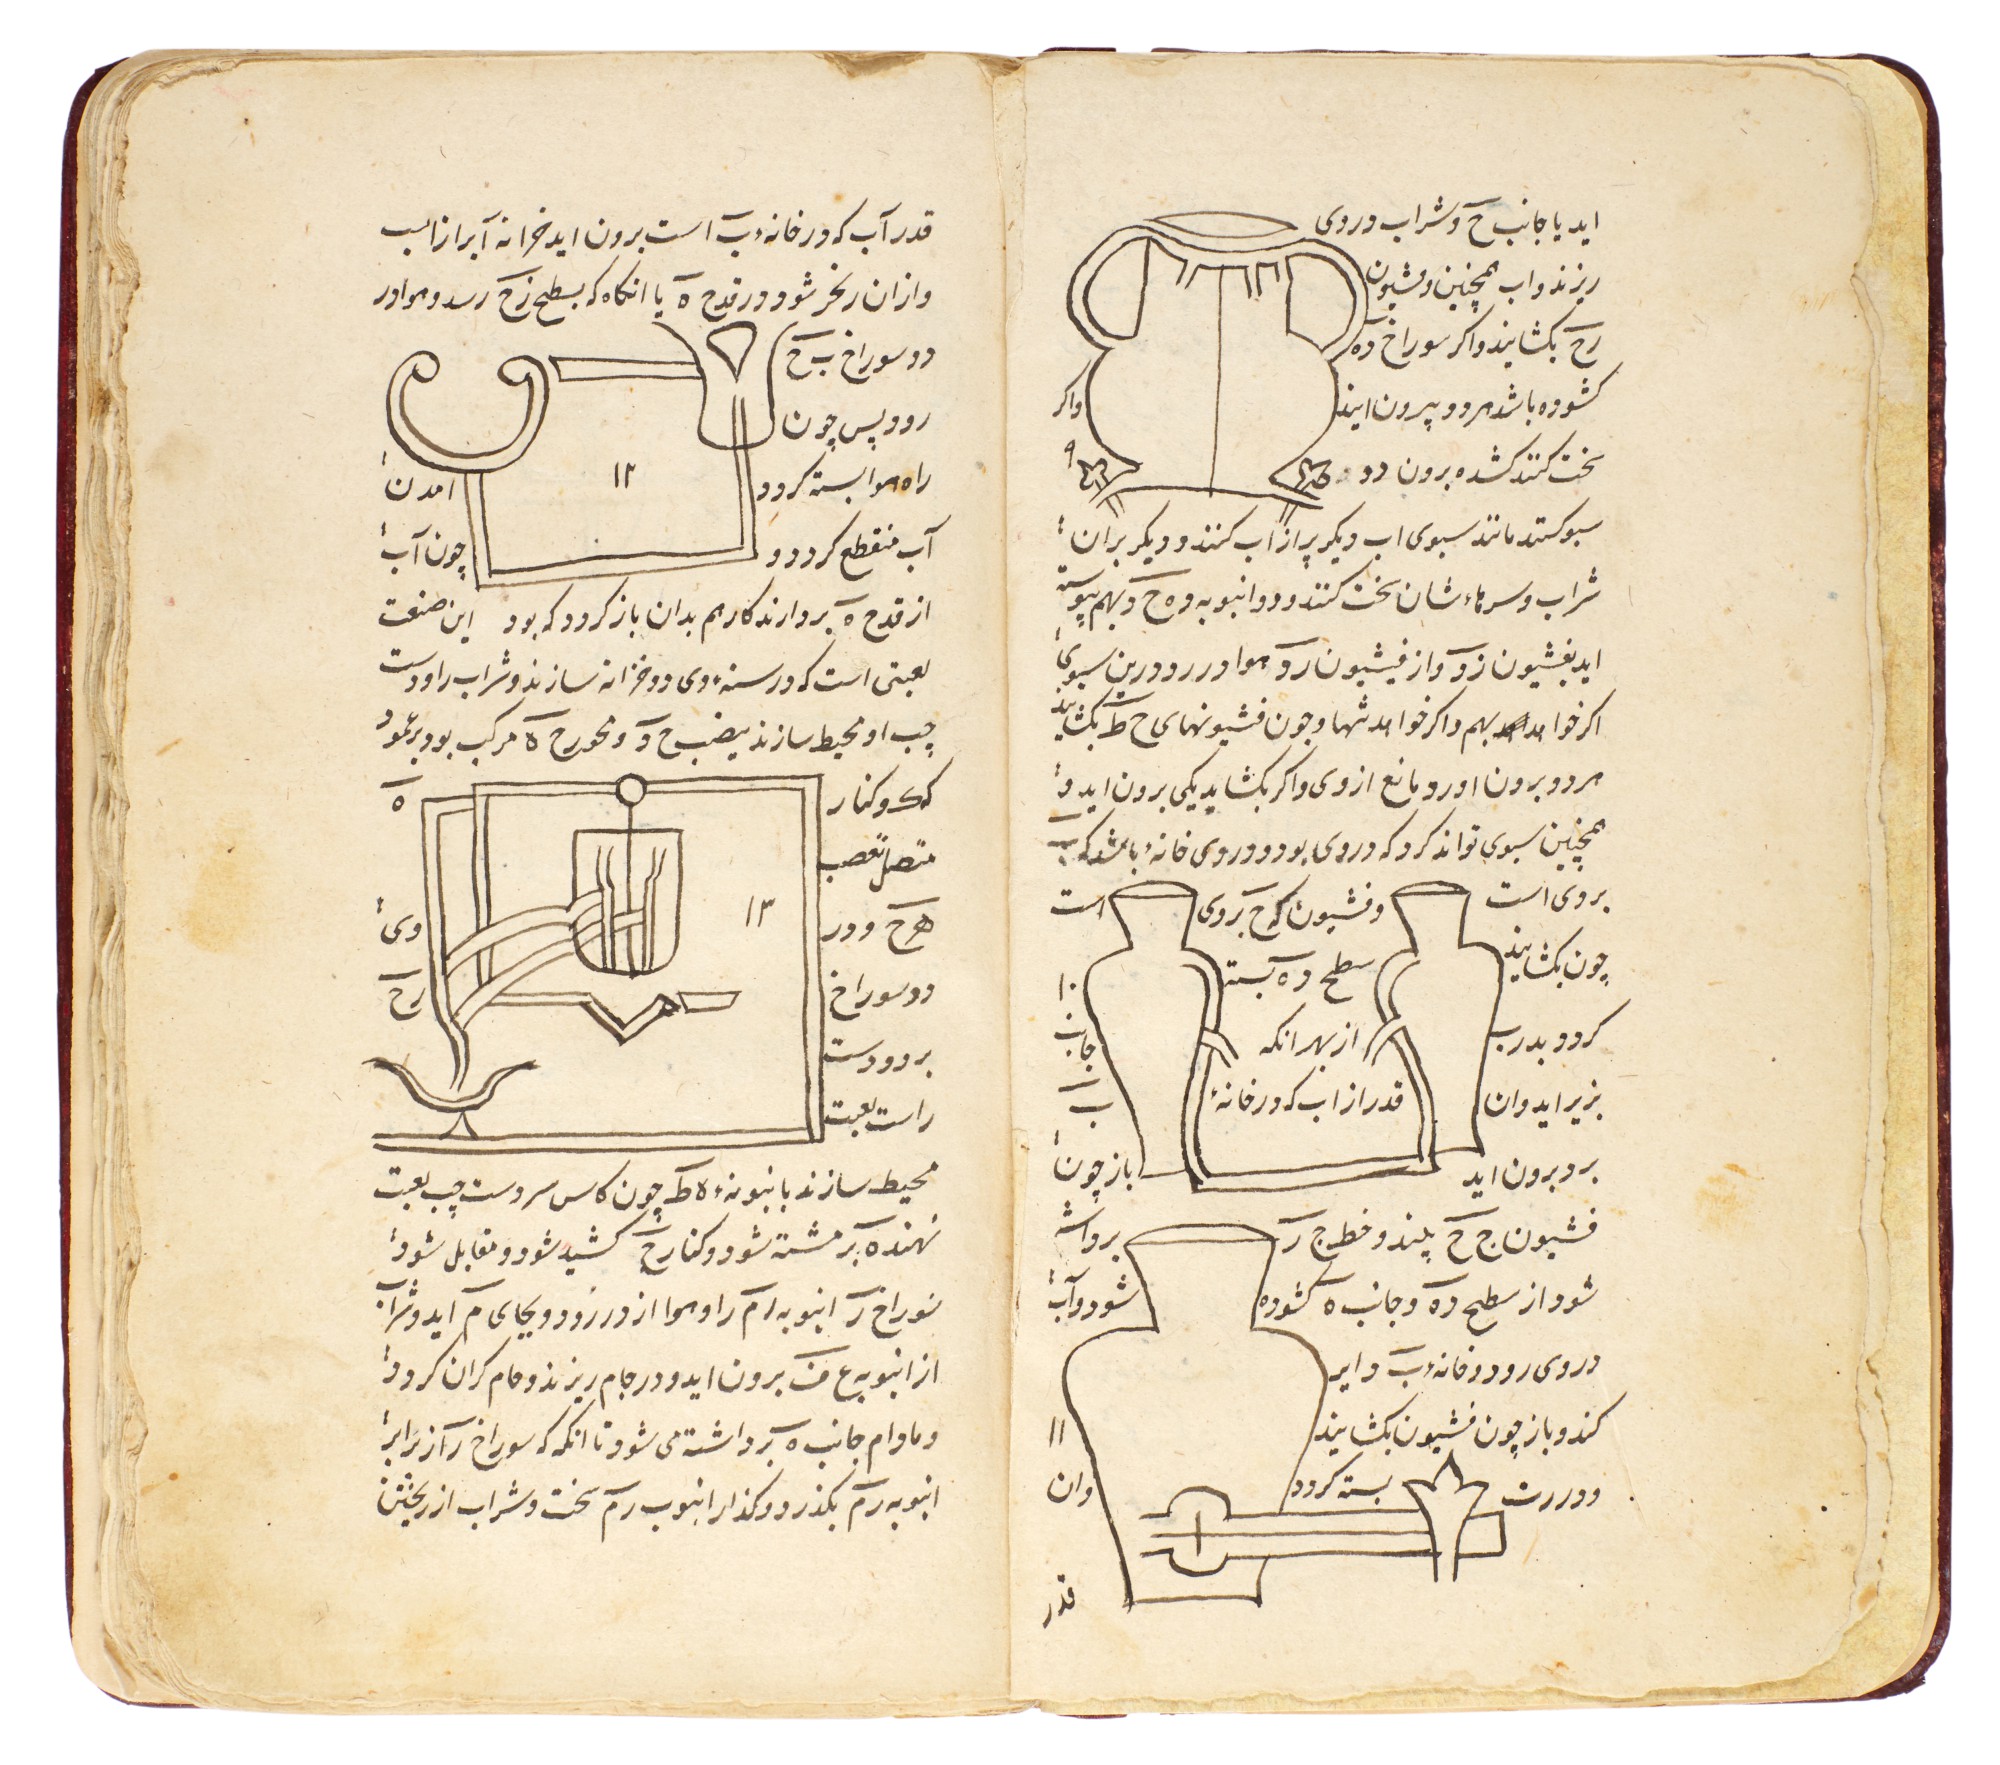 اید یا جانب ح و شراب در وی
ریزند و اب همچنین و فشیون
رح بکشایند و اکر سوراخ ده
کشوده باشد هر دو بیرون ایند واکر
سخت کنند کشده برون دو ۹
سبو کنند مانند سبوی اب دیکر پر از اب کنند و دیکر بران
شراب و سرهاء شان سخت کنند و دو انبوبه وه ح و بهم پیوسته
اید بفشیون ز و از فیشیون ر و هوا در رود درین سبوی
اکر خواهد بهم و اکر خواهد تنها و چون فشیونهای ح ط بکشایند
هر دو برون اورد مانع از وی و اکر بکشاید یکی برون اید و
همچنین سبوی تواند کرد که در وی بود و در وی خانهٔ باشد که ب
بر وی است و فشیون که ح بر وی است
چون بکشایند سطح ده بسته ۱۰
کردد بدرب از بهر انکه جانب
بزیر اید و ان قدر از اب که در خانهٔ ب
برد برون اید باز چون
فشیون ج ح بلند و خط ج ر برداشته
شود از سطح ده و جانب ه کشوده شود و آب
در وی رود و خانهٔ ب و ایر
کند و باز چون فشیون بکشایند ۱۱
و در رست بسته کردد وان
قدر
قدر آب که در خانهٔ ب است برون اید خزانه آب را ز اب
و از ان ریخر شود در قدح ه یا انکاه که بسطح زح رسد و هوا در
دو سوراخ ب ح
رود پس چون
راه هوا بسته کردد ۱۲ امدن
آب منقطع کردد و چون آب
از قدح ه بردارند کار هم بدان باز کردد که بود این صنعت
لعبتی است که در سنهٔ وی دو خزانه سازند و شراب را و دست
چپ او محیط سازند بیضب ح و و محور ح ه مرکب بود بر عمود
ک و کنار ه
متصل بقصب
ه ح و در ۱۳ وی
دو سوراخ رح
برد و دست
راست لعبت
محیط سازند با نبونهٔ ه ط چون کاس سر دست چپ لعبت
نهند ه بر مشته شود و کنار ح کشید شود و مقابل شود
سوراخ ر انبوبه ام را و هوا از در رود و بجای م اید و شراب
از انبوبه ع ف برون اید و در جام ریزند و جام کران کردد
و مادام جانب ه برداشته می شود تا انکه که سوراخ ر از برابر
انبوبه رم بکذرد و کذار انبوب رم سخت و شراب از ریختن